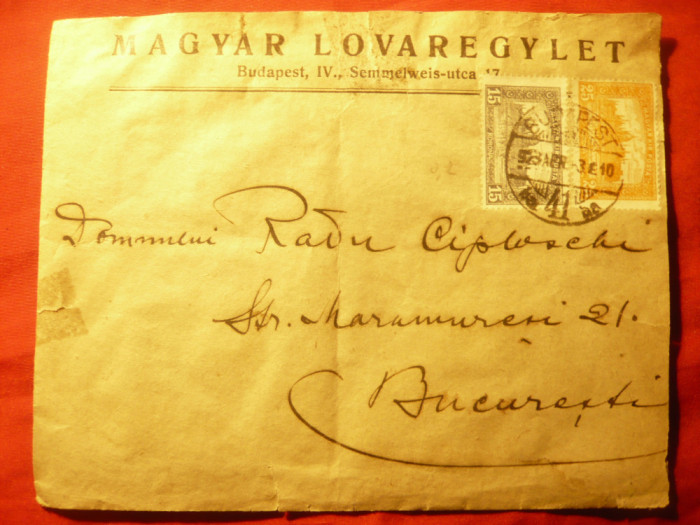 MAGYAR LOVAREGYLET
Budapest, IV., Semmelweis-utca 17
15 25
BUDAPEST
15 15
923 APR -3. E 10
41
Domnului Radu Ciploschi
Str. Maramureși 21.
București